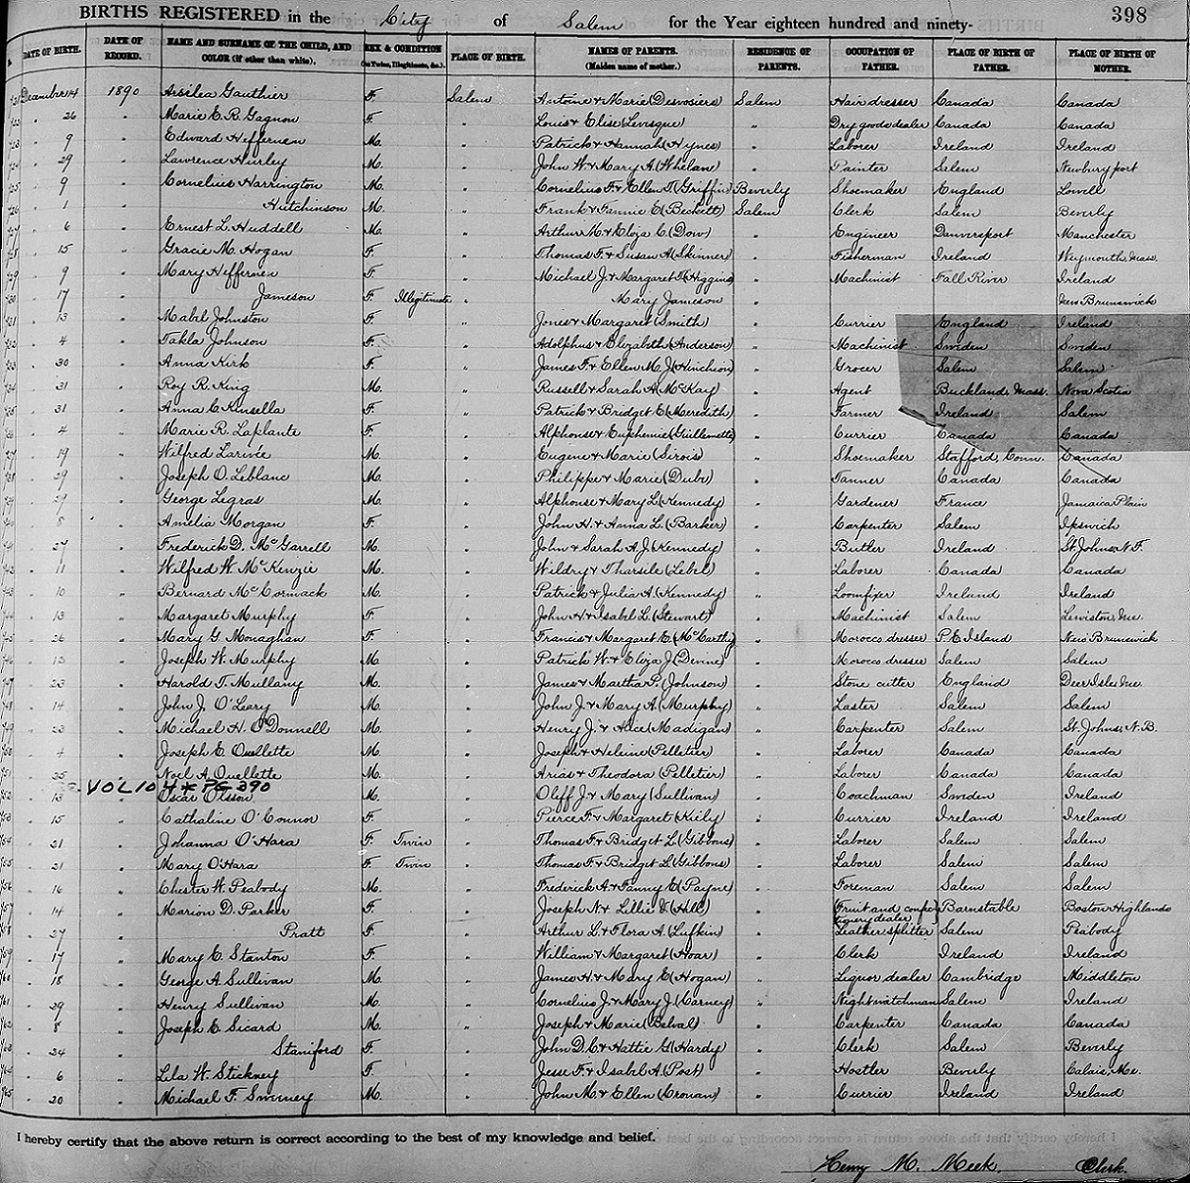 BIRTHS REGISTERED in the City of Salem for the Year eighteen hundred and ninety- 398
DATE OF BIRTH. DATE OF RECORD. NAME AND SURNAME OF THE CHILD, AND COLOR (if other than white). SEX & CONDITION (as Twins, Illegitimate, &c.) PLACE OF BIRTH. NAMES OF PARENTS. (Maiden name of mother.) RESIDENCE OF PARENTS. OCCUPATION OF FATHER. PLACE OF BIRTH OF FATHER. PLACE OF BIRTH OF MOTHER.
December 14 1890 Arsilea Gauthier F. Salem Antoine & Marie (Desrosiers) Salem Hair dresser Canada Canada
" 26 " Marie E. R. Gagnon F. " Louis & Elise (Levesque) " Dry goods dealer Canada Canada
" 9 " Edward Heffernen M. " Patrick & Hannah (Hynes) " Laborer Ireland Ireland
" 29 " Lawrence Hurley M. " John W. & Mary A. (Whelan) " Painter Salem Newburyport
" 9 " Cornelius Harrington M. " Cornelius F. & Ellen T. (Griffin) Beverly Shoemaker England Lowell
" 1 " Hutchinson M. " Frank & Fannie E. (Beckett) Salem Clerk Salem Beverly
" 6 " Ernest L. Huddell M. " Arthur M. & Eliza C. (Dow) " Engineer Danversport Manchester
" 15 " Gracie M. Hogan F. " Thomas F. & Susan A. (Skinner) " Fisherman Ireland Weymouth, Mass.
" 9 " Mary Heffernen F. " Michael J. & Margaret T. (Higgins) " Machinist Fall River Ireland
" 17 " Jameson F. Illegitimate " Mary Jameson " New Brunswick
" 13 " Mabel Johnston F. " Jones & Margaret (Smith) " Currier England Ireland
" 4 " Takla Johnson F. " Adolphus & Elizabeth (Anderson) " Machinist Sweden Sweden
" 30 " Anna Kirk F. " James F. & Ellen M. J. (Hinchion) " Grocer Salem Salem
" 31 " Roy R. King M. " Russell & Sarah A. (McKay) " Agent Buckland, Mass. Nova Scotia
" 31 " Anna C. Kinsella F. " Patrick & Bridget E. (Meredith) " Farmer Ireland Salem
" 4 " Marie R. Laplante F. " Alphonse & Euphemie (Guillemette) " Currier Canada Canada
" 19 " Wilfred Larivée M. " Eugene & Marie (Sirois) " Shoemaker Stafford, Conn. Canada
" 29 " Joseph O. Leblanc M. " Philippe & Marie (Dube) " Tanner Canada Canada
" 29 " George Legras M. " Alphonse & Mary L. (Kennedy) " Gardener France Jamaica Plain
" 8 " Amelia Morgan F. " John H. & Anna L. (Barker) " Carpenter Salem Ipswich
" 27 " Frederick D. McGarrell M. " John & Sarah A. J. (Kennedy) " Butler Ireland St. Johns N.F.
" 11 " Wilfred W. McKenzie M. " Wildry & Tharsile (Lebel) " Laborer Canada Canada
" 10 " Bernard McCormack M. " Patrick & Julia A. (Kennedy) " Loomfixer Ireland Ireland
" 13 " Margaret Murphy F. " John H. & Isabel L. (Stewart) " Machinist Salem Lewiston, Me.
" 26 " Mary G. Monaghan F. " Francis & Margaret E. (McCarthy) " Morocco dresser P.E. Island New Brunswick
" 13 " Joseph W. Murphy M. " Patrick W. & Eliza J. (Devine) " Morocco dresser Salem Salem
" 23 " Harold T. Mullany M. " James & Martha P. (Johnson) " Stone cutter England Deer Isle, Me.
" 14 " John J. O'Leary M. " John J. & Mary A. (Murphy) " Laster Salem Salem
" 23 " Michael H. O'Donnell M. " Henry J. & Alice (Madigan) " Carpenter Salem St. Johns, N.B.
" 4 " Joseph E. Ouellette M. " Joseph & Heleine (Pelletier) " Laborer Canada Canada
" 25 " Noel A. Ouellette M. " Arias & Theodora (Pelletier) " Laborer Canada Canada
VOL 104 * PG 390
" 13 " Oscar Olsson M. " Oliff J. & Mary (Sullivan) " Coachman Sweden Ireland
" 15 " Cathaline O'Connor F. " Pierce F. & Margaret (Kiely) " Currier Ireland Ireland
" 21 " Johanna O'Hara F. Twin " Thomas F. & Bridget L. (Gibbons) " Laborer Salem Salem
" 21 " Mary O'Hara F. Twin " Thomas F. & Bridget L. (Gibbons) " Laborer Salem Salem
" 16 " Chester W. Peabody M. " Frederick A. & Fanny E. (Payne) " Foreman Salem Salem
" 14 " Marion D. Parker F. " Joseph N. & Lillie D. (Hll) " Fruit and confectionery dealer Barnstable Boston Highlands
" 27 " Pratt F. " Arthur L. & Flora A. (Lufkin) " Leather splitter Salem Peabody
" 17 " Mary E. Stanton F. " William & Margaret (Hoar) " Clerk Ireland Ireland
" 18 " George A. Sullivan M. " James H. & Mary E. (Hogan) " Liquor dealer Cambridge Middleton
" 29 " Henry Sullivan M. " Cornelius J. & Mary J. (Carney) " Nightwatchman Salem Ireland
" 8 " Joseph E. Sicard M. " Joseph & Marie (Belval) " Carpenter Canada Canada
" 24 " Staniford F. " John D. C. & Hattie G. (Hardy) " Clerk Salem Beverly
" 6 " Lila W. Stickney F. " Jesse F. & Isabel A. (Post) " Hostler Beverly Calais, Me.
" 20 " Michael F. Sweeney M. " John M. & Ellen (Cronan) " Currier Ireland Ireland
I hereby certify that the above return is correct according to the best of my knowledge and belief.
Henry M. Meek, Clerk.